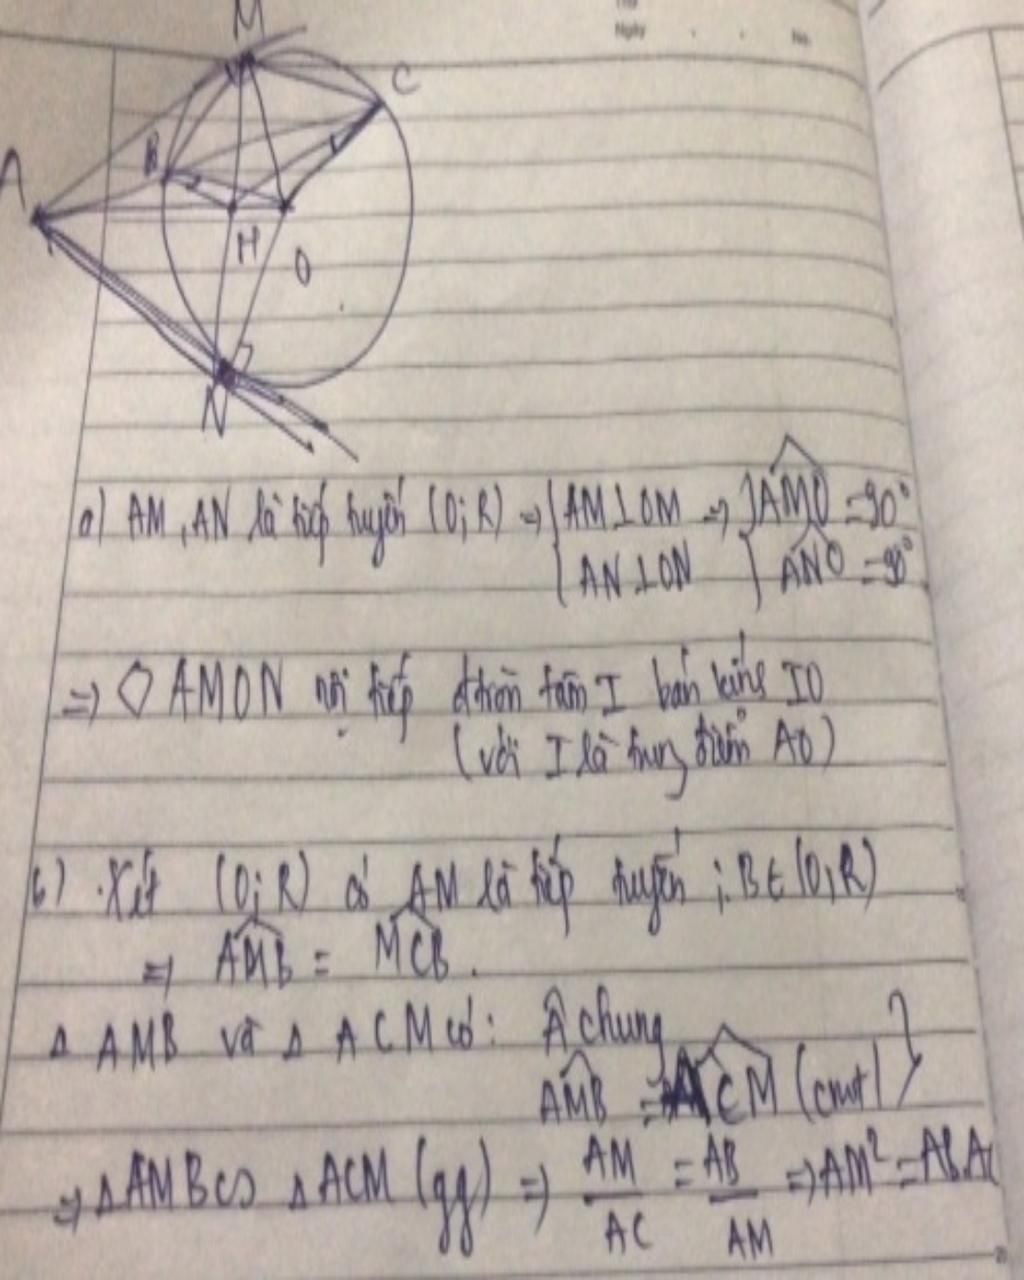 Ngày
No.
M
C
B
A
H
O
N
a) AM, AN là tiếp tuyến (O; R) => { AM ⊥ OM => } AMO = 90°
AN ⊥ ON ANO = 90°
=> ◇ AMON nội tiếp đtròn tâm I bán kính IO
(với I là trung điểm AO)
b) . Xét (O; R) có AM là tiếp tuyến ; B ∈ (O, R)
=> AMB = MCB .
Δ AMB và Δ ACM có : Â chung
AMB = ACM (cmt) }
=> Δ AMB ∽ Δ ACM (gg) => AM/AC = AB/AM => AM² = AB.AC